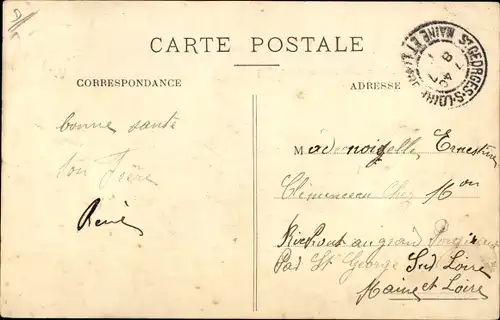 D
CARTE POSTALE
CORRESPONDANCE
ADRESSE
St GEORGES-S-LOIRE
MAINE ET LOIRE
bonne santé
ton Frère
René
Mademoiselle Ernestine
Clémenceau Chez Mon
au grand
Par St George Sud Loire
Maine et Loire